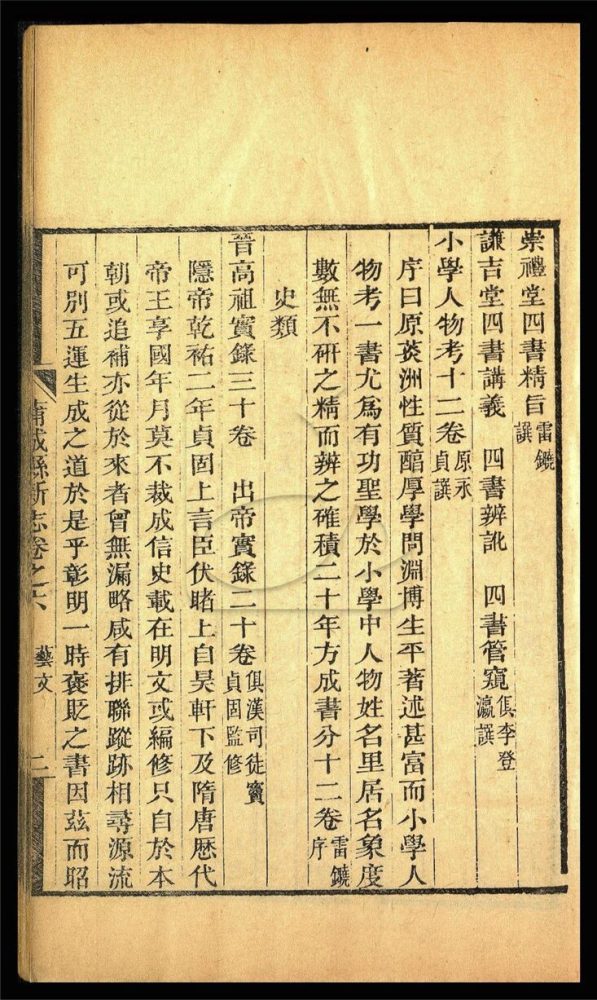 崇禮堂四書精旨雷鐖譔
謙吉堂四書講義　四書辨訛　四書管窺俱李登瀛譔
小學人物考十二卷原永貞譔
序曰原莢洲性質醕厚學問淵博生平著述甚富而小學人
物考一書尤爲有功聖學於小學中人物姓名里居名象度
數無不研之精而辨之確積二十年方成書分十二卷雷鐖序
史類
晉高祖實錄三十卷　出帝實錄二十卷俱漢司徒竇貞固監修
隱帝乾祐二年貞固上言臣伏睹上自昊軒下及隋唐歷代
帝王享國年月莫不裁成信史載在明文或編修只自於本
朝或追補亦從於來者曾無漏略咸有排聯蹤跡相尋源流
可別五運生成之道於是乎彰明一時褒貶之書因茲而昭
蒲城縣新志卷之六　藝文　二